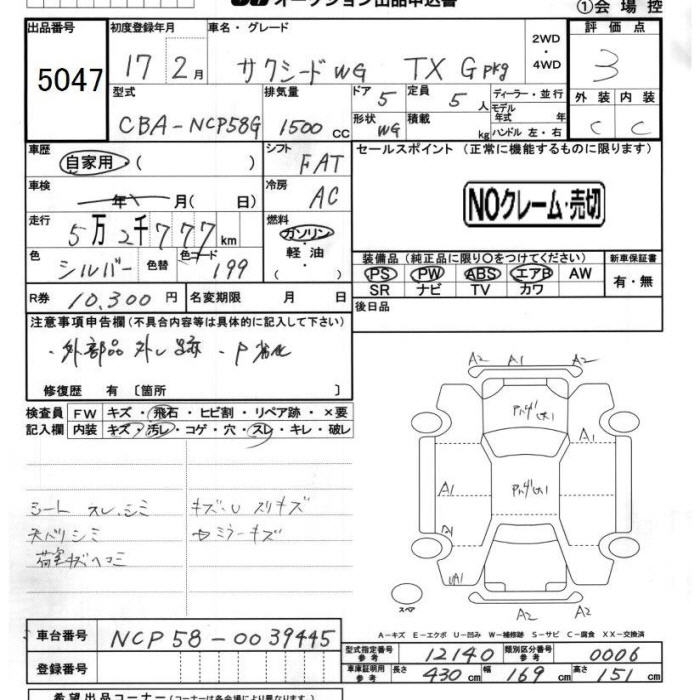 オークション出品申込書 ①会場控
出品番号 初度登録年月 車名・グレード 2WD・4WD 評価点
5047 17 2月 サクシードWG TX Gpkg 3
型式 排気量 ドア 5 定員 5人 ディーラー・並行 外装 内装
CBA-NCP58G 1500cc 形状 WG 積載 kg モデル年式 年 ハンドル 左・右 C C
車歴 自家用 ( ) シフト FAT セールスポイント (正常に機能するものに限ります)
車検 年 月( 日) 冷房 AC NOクレーム・売切
走行 5万2千777km 燃料 ガソリン・軽油・( )
色 シルバー 色替 色コード 199 装備品 (純正品に限り〇をつけてください) 新車保証書
PS PW ABS エアB AW 有・無
SR ナビ TV カワ
R券 10,300円 名変期限 月 日 後日品
注意事項申告欄(不具合内容等は具体的に記入して下さい)
・外部品 外し跡 ・P劣化
修復歴 有 〔箇所 〕
検査員 FW キズ・飛石・ヒビ割・リペア跡・×要
記入欄 内装 キズ・汚レ・コゲ・穴・スレ・キレ・破レ
シート スレ、シミ キズ・U スリキズ
天バリシミ ミラーキズ
荷室キズヘコミ
A2 A1 A2
A1
A1
A1
UA1
A2 A1 A2
スペア
A-キズ E-エクボ U-凹み W-補修跡 S-サビ C-腐食 XX-交換済
車台番号 NCP58-0039445
型式指定番号 参考 12140 類別区分番号 参考 0006
登録番号 車庫証明用 参考 長さ 430cm 幅 169cm 高さ 151cm
希望出品コーナー (コーナーは各会場により異なります。)